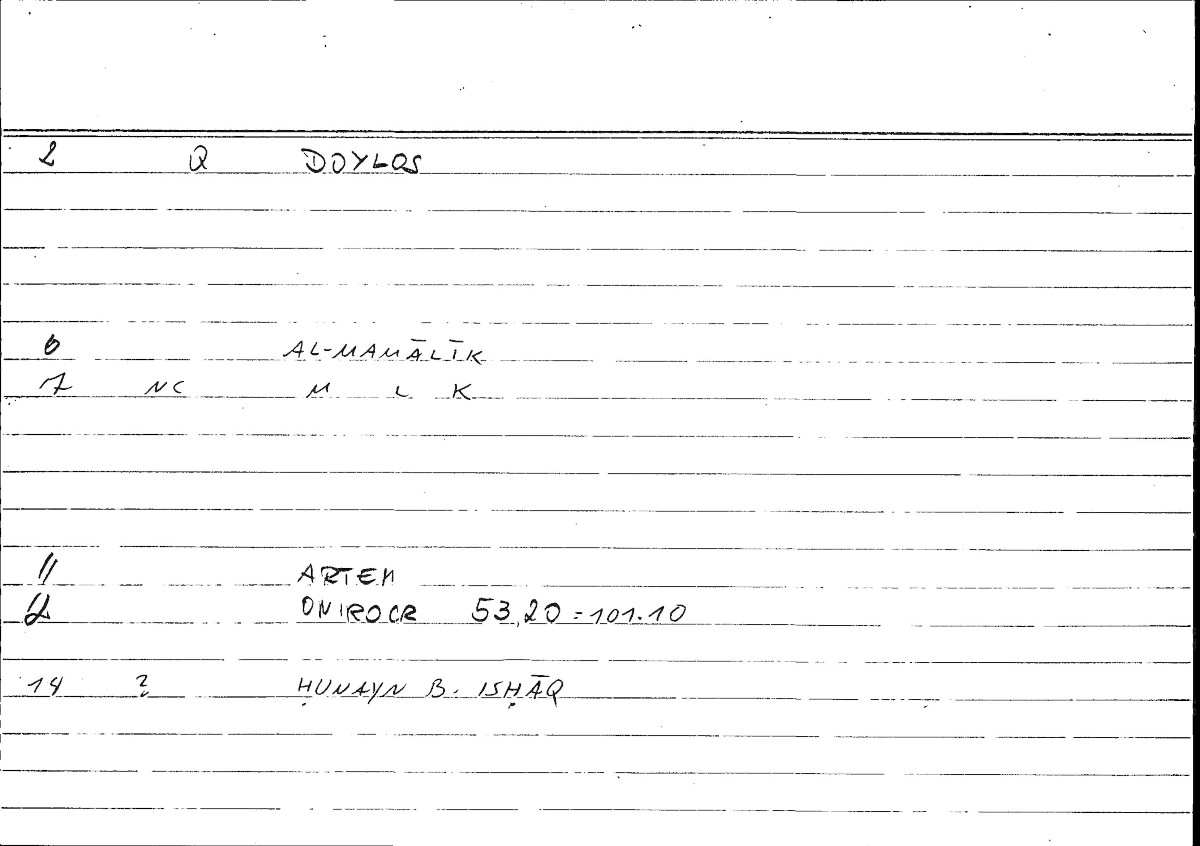 2 Q DOYLOS
6 AL-MAMĀLĪK
7 NC M L K
11 ARTEM
12 ONIROCR 53,20 = 101.10
14 ? ḤUNAYN B. ISḤĀQ